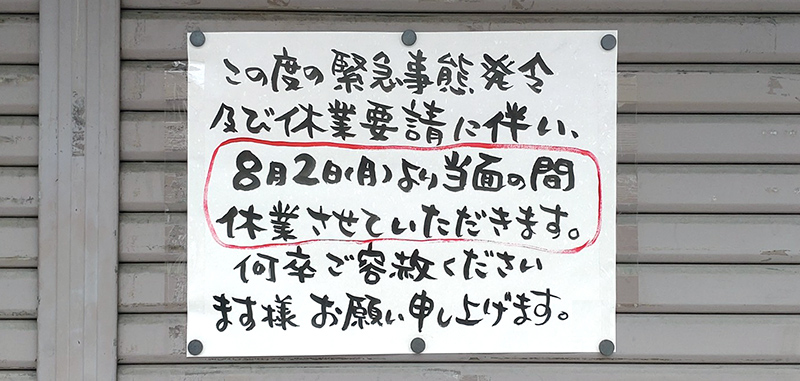 この度の緊急事態発令
及び休業要請に伴い、
8月2日(月)より当面の間
休業させていただきます。
何卒ご容赦ください
ます様 お願い申し上げます。